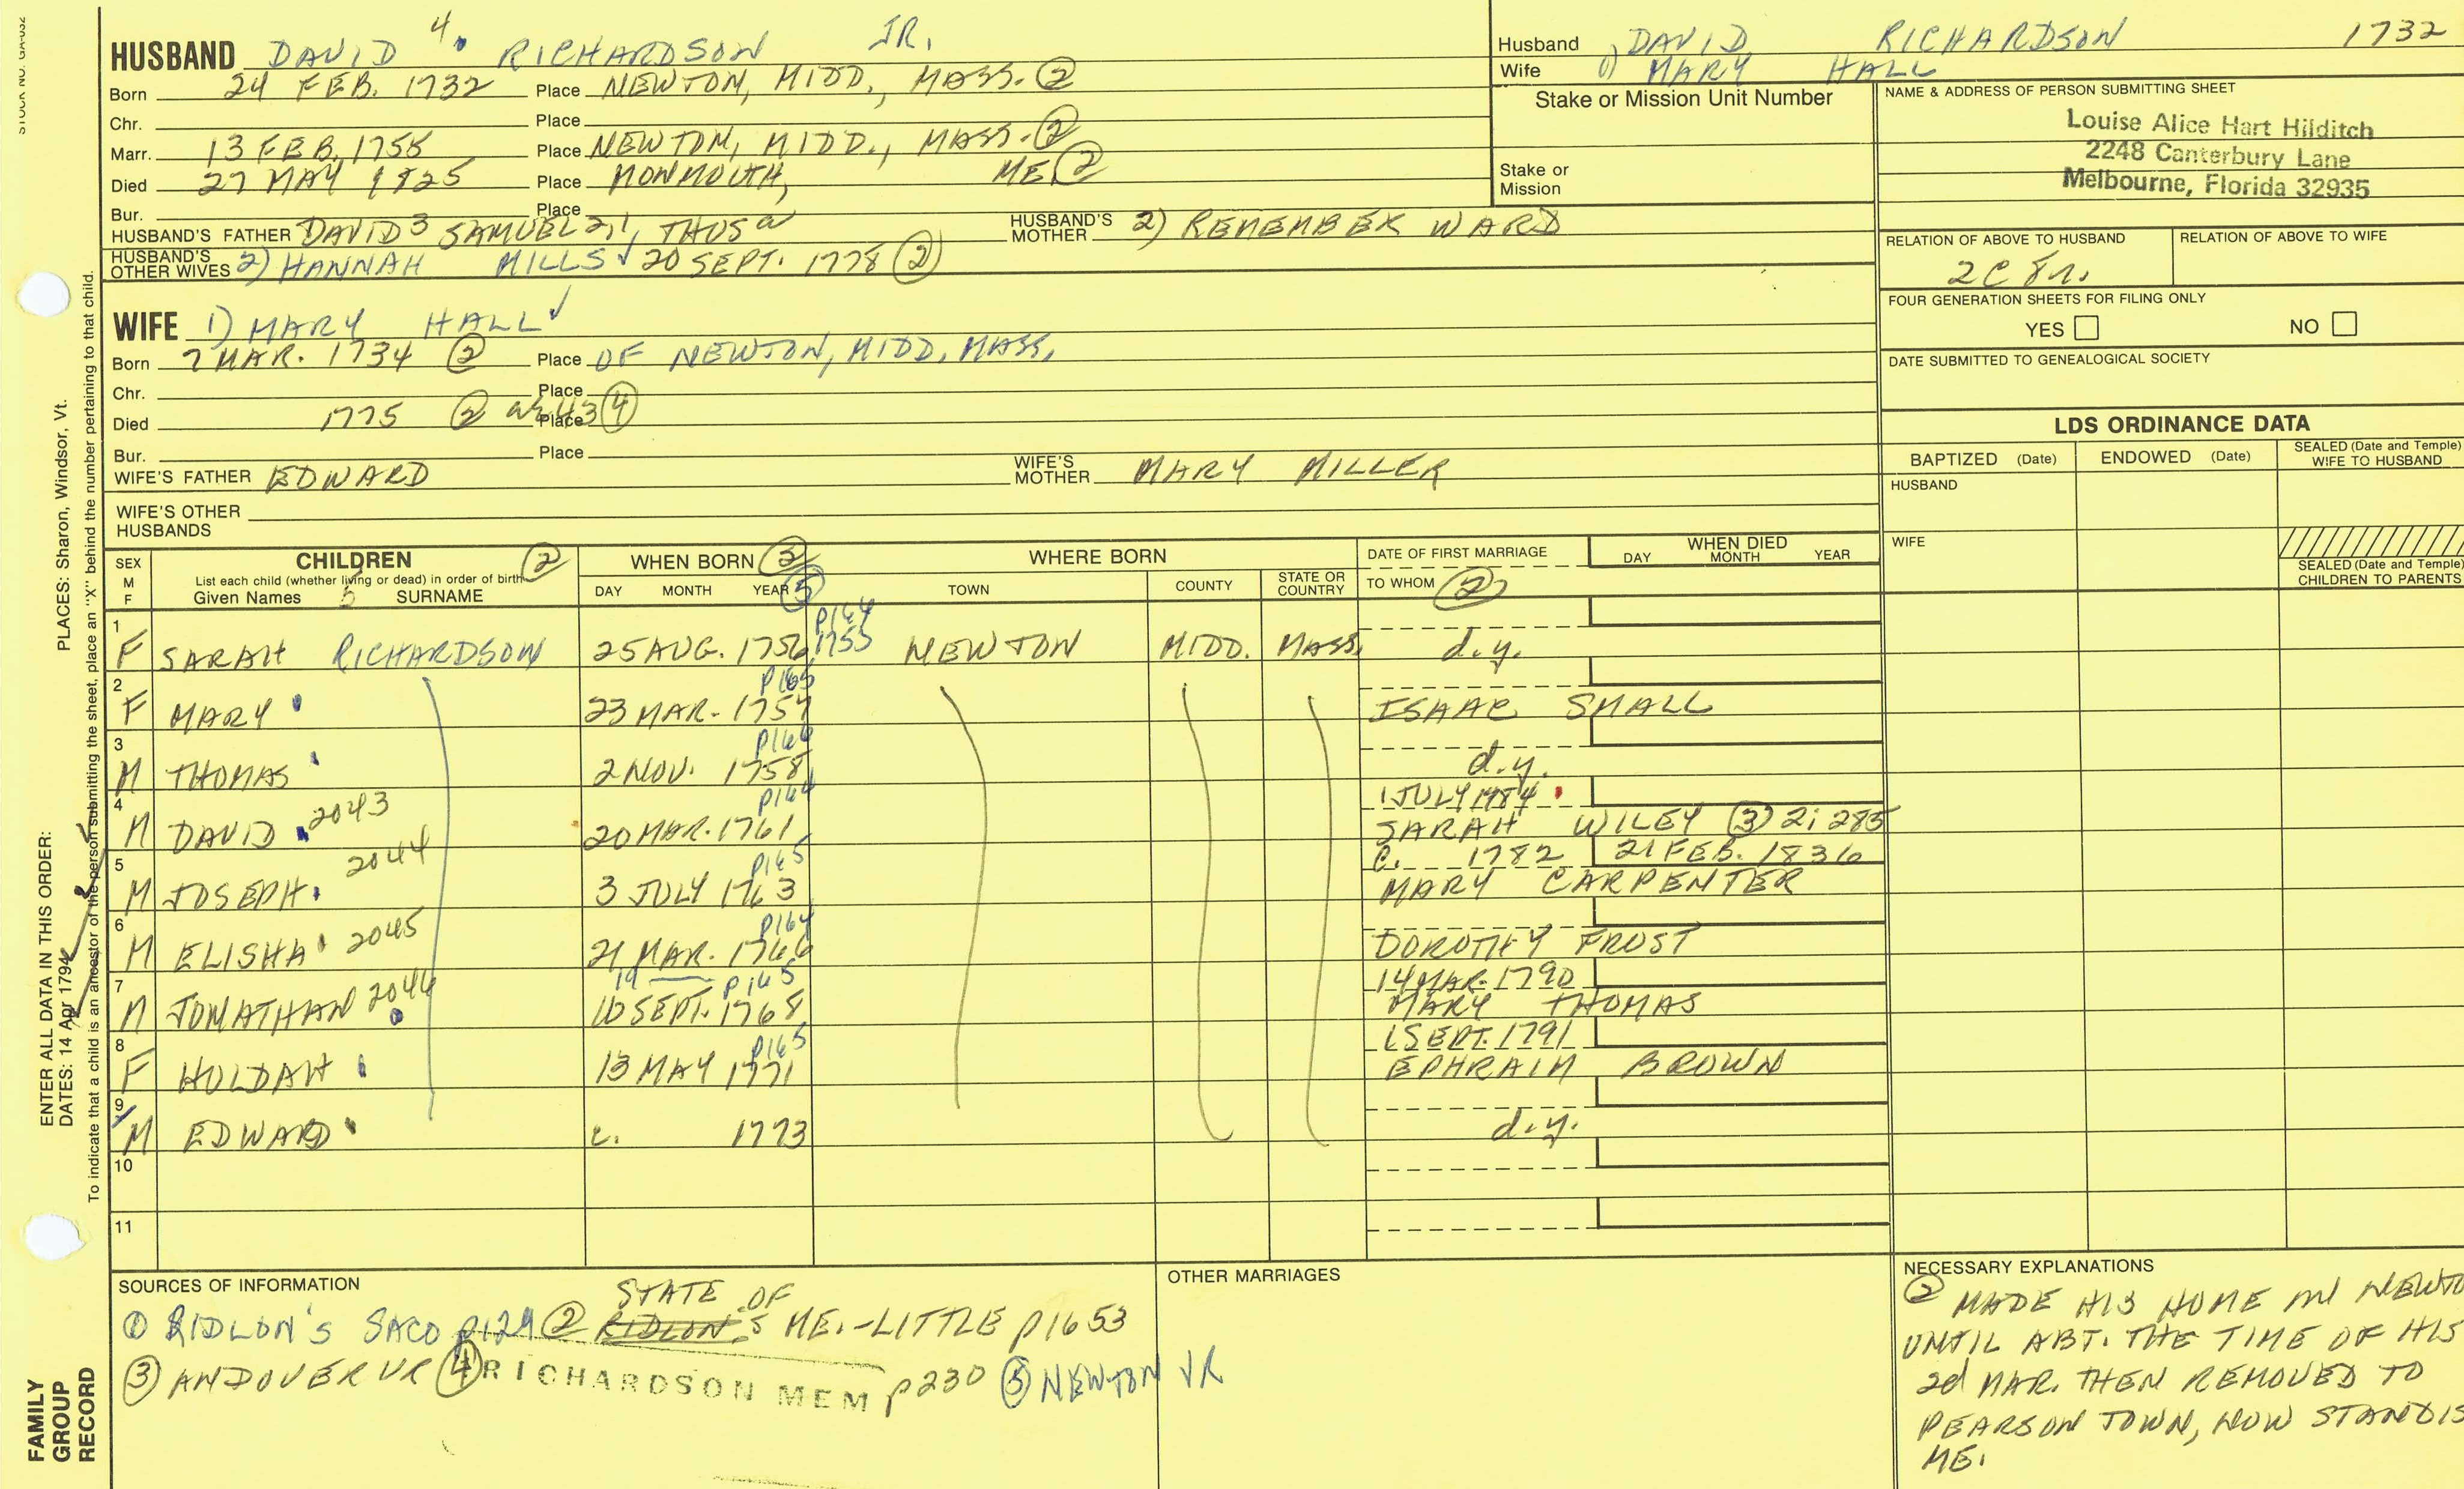 STOCK NO. GA-032
HUSBAND DAVID 4. RICHARDSON JR.
Born 24 FEB. 1732 Place NEWTON, MIDD., MASS. ②
Chr. Place
Marr. 13 FEB. 1755 Place NEWTON, MIDD., MASS. ②
Died 27 MAY 1825 Place MONMOUTH, ME ②
Bur. Place
HUSBAND'S FATHER DAVID 3 SAMUEL 2, 1, THOS a HUSBAND'S MOTHER 2) REMEMBER WARD
HUSBAND'S OTHER WIVES 2) HANNAH MILLS √ 20 SEPT. 1778 ②
WIFE 1) MARY HALL √
Born 7 MAR. 1734 ② Place OF NEWTON, MIDD, MASS,
Chr. Place
Died 1775 ② ae 43 ④ Place
Bur. Place
WIFE'S FATHER EDWARD WIFE'S MOTHER MARY MILLER
WIFE'S OTHER HUSBANDS
Husband 1) DAVID RICHARDSON 1732
Wife 1) MARY HALL
Stake or Mission Unit Number
Stake or Mission
NAME & ADDRESS OF PERSON SUBMITTING SHEET
Louise Alice Hart Hilditch
2248 Canterbury Lane
Melbourne, Florida 32935
RELATION OF ABOVE TO HUSBAND RELATION OF ABOVE TO WIFE
2C 8r.
FOUR GENERATION SHEETS FOR FILING ONLY
YES NO
DATE SUBMITTED TO GENEALOGICAL SOCIETY
LDS ORDINANCE DATA
BAPTIZED (Date) ENDOWED (Date) SEALED (Date and Temple) WIFE TO HUSBAND
HUSBAND
WIFE
SEALED (Date and Temple) CHILDREN TO PARENTS
SEX M F CHILDREN ② WHEN BORN ③ ⑤ WHERE BORN DATE OF FIRST MARRIAGE WHEN DIED
List each child (whether living or dead) in order of birth DAY MONTH YEAR TOWN COUNTY STATE OR COUNTRY TO WHOM ② DAY MONTH YEAR
Given Names 5 SURNAME
1 F SARAH RICHARDSON 25 AUG. 1756 p164 1755 NEWTON MIDD. MASS. d.y.
2 F MARY 23 MAR. 1757 p165 ISAAC SMALL
3 M THOMAS 2 NOV. 1758 p166 d.y.
4 M DAVID 2043 20 MAR. 1761 p164 1 JULY 1784 SARAH WILEY ③ 2; 285
5 M JOSEPH 2044 3 JULY 1763 p165 c. 1782 21 FEB. 1836 MARY CARPENTER
6 M ELISHA 2045 21 MAR. 1766 p164 DOROTHY FROST
7 M JONATHAN 2046 19 p165 10 SEPT. 1768 14 MAR. 1790 MARY THOMAS
8 F HULDAH 13 MAY 1771 p165 1 SEPT. 1791 EPHRAIM BROWN
9 M EDWARD c. 1773 d.y.
10
11
SOURCES OF INFORMATION
① RIDLON'S SACO p129 ② RIDLON'S STATE OF ME.-LITTLE p1653
③ ANDOVER VR ④ RICHARDSON MEM p230 ⑤ NEWTON VR
OTHER MARRIAGES
NECESSARY EXPLANATIONS
② MADE HIS HOME IN NEWTO
UNTIL ABT. THE TIME OF HIS
2d MAR. THEN REMOVED TO
PEARSON TOWN, NOW STANDIS
ME.
ENTER ALL DATA IN THIS ORDER:
PLACES: Sharon, Windsor, Vt.
DATES: 14 Apr 1794
To indicate that a child is an ancestor of the person submitting the sheet, place an "X" behind the number pertaining to that child.
FAMILY GROUP RECORD